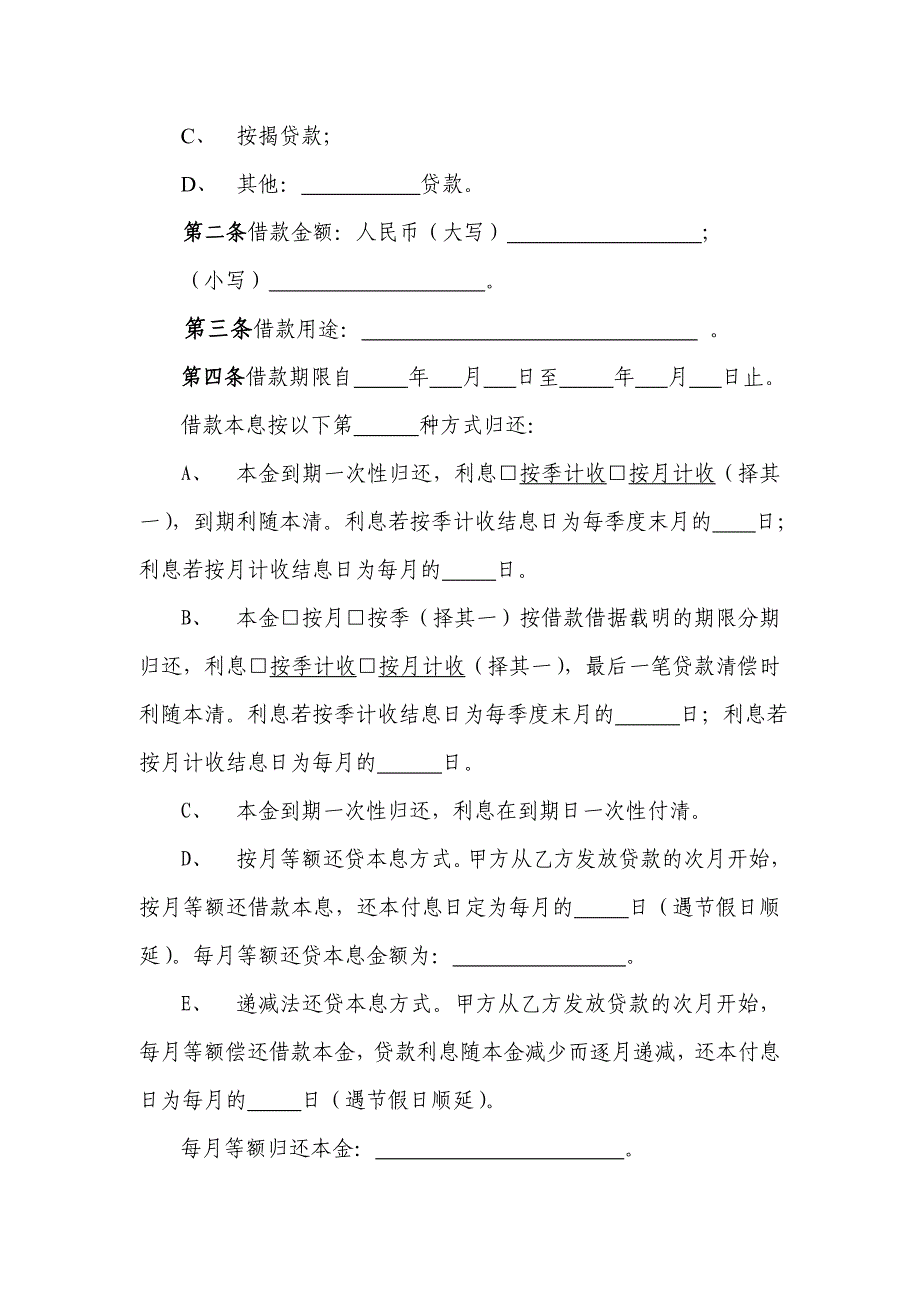 C、 按揭贷款；
D、 其他：___________贷款。
第二条借款金额：人民币（大写）__________________；
（小写）____________________。
第三条借款用途：_______________________________ 。
第四条借款期限自_____年___月___日至_____年___月___日止。
借款本息按以下第______种方式归还：
A、 本金到期一次性归还，利息□按季计收□按月计收（择其
一），到期利随本清。利息若按季计收结息日为每季度末月的____日；
利息若按月计收结息日为每月的_____日。
B、 本金□按月□按季（择其一）按借款借据载明的期限分期
归还，利息□按季计收□按月计收（择其一），最后一笔贷款清偿时
利随本清。利息若按季计收结息日为每季度末月的______日；利息若
按月计收结息日为每月的______日。
C、 本金到期一次性归还，利息在到期日一次性付清。
D、 按月等额还贷本息方式。甲方从乙方发放贷款的次月开始，
按月等额还借款本息，还本付息日定为每月的_____日（遇节假日顺
延）。每月等额还贷本息金额为：________________。
E、 递减法还贷本息方式。甲方从乙方发放贷款的次月开始，
每月等额偿还借款本金，贷款利息随本金减少而逐月递减，还本付息
日为每月的_____日（遇节假日顺延）。
每月等额归还本金：_______________________。